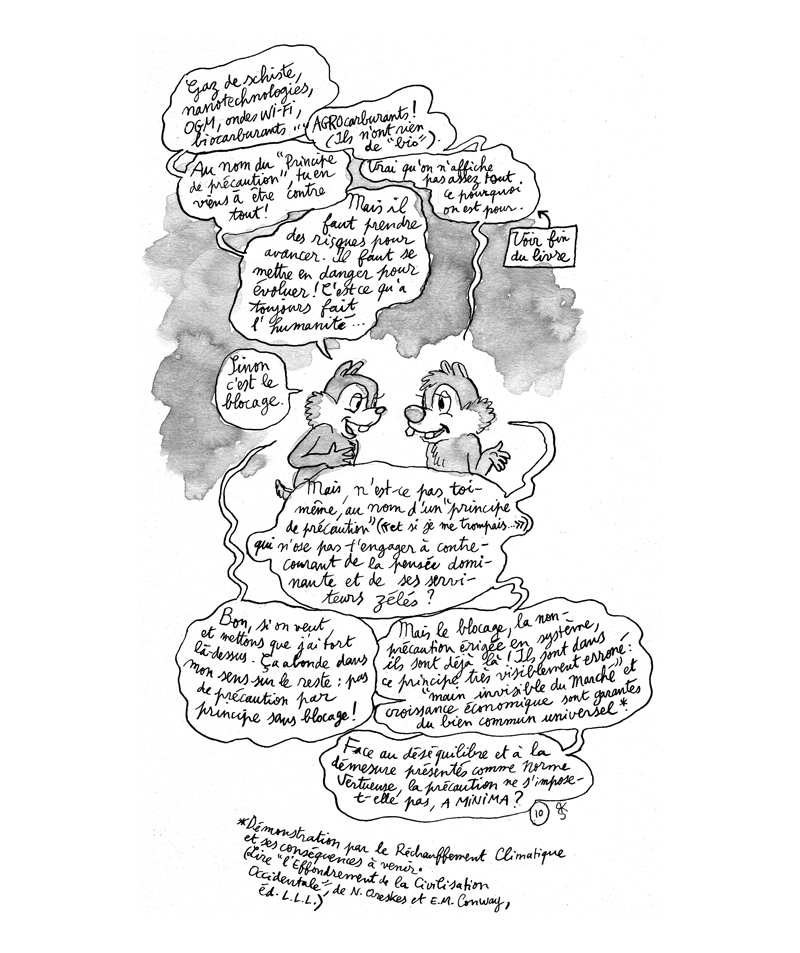 Gaz de schiste,
nanotechnologies,
OGM, ondes Wi-Fi,
biocarburants...
AGROcarburants!
(Ils n'ont rien
de "bio").
Au nom du "Principe
de précaution", tu en
viens à être contre
tout!
Vrai qu'on n'affiche
pas assez tout
ce pourquoi
on est pour.
Voir fin
du livre
Mais il
faut prendre
des risques pour
avancer. Il faut se
mettre en danger pour
évoluer! C'est ce qu'a
toujours fait
l'humanité...
Sinon
c'est le
blocage.
Mais, n'est-ce pas toi-
même, au nom d'un "principe
de précaution" («et si je me trompais...»)
qui n'ose pas t'engager à contre-
courant de la pensée domi-
nante et de ses servi-
teurs zélés?
Bon, si on veut,
et mettons que j'ai tort
là-dessus. Ça abonde dans
mon sens sur le reste: pas
de précaution par
principe sans blocage!
Mais le blocage, la non-
précaution érigée en système,
ils sont déjà là! Ils sont dans
ce principe très visiblement erroné:
"main invisible du Marché" et
croissance économique sont garantes
du bien commun universel*
Face au déséquilibre et à la
démesure présentés comme Norme
Vertueuse, la précaution ne s'impose-
t-elle pas, A MINIMA?
10
*Démonstration par le Réchauffement Climatique
et ses conséquences à venir.
(Lire "l'Effondrement de la Civilisation
Occidentale", de N. Oreskes et E.M. Conway,
éd. L.L.L.)